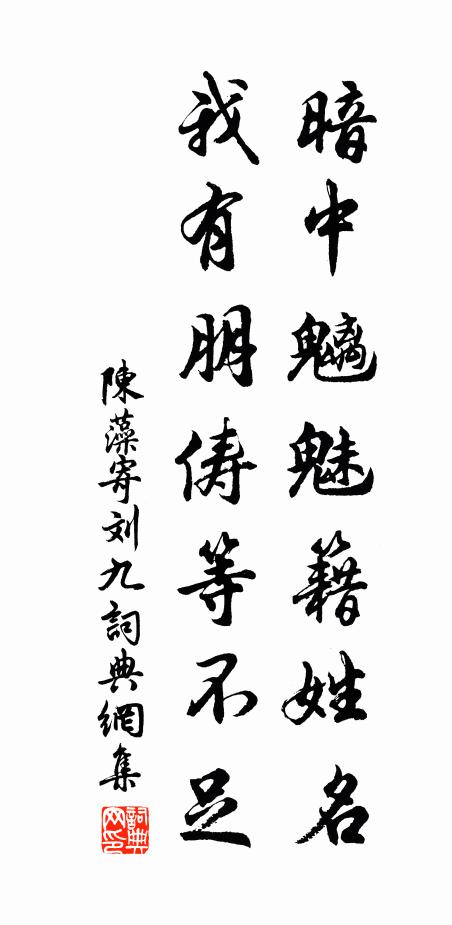 暗中魑魅籍姓名
我有朋俦等不足
陳藻寄刘九詞典網集
詞典网印